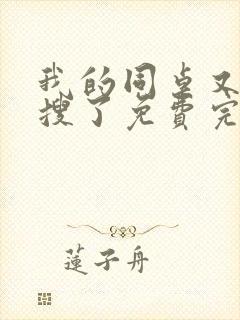 我的同桌又
搜了免費完
蓮子舟